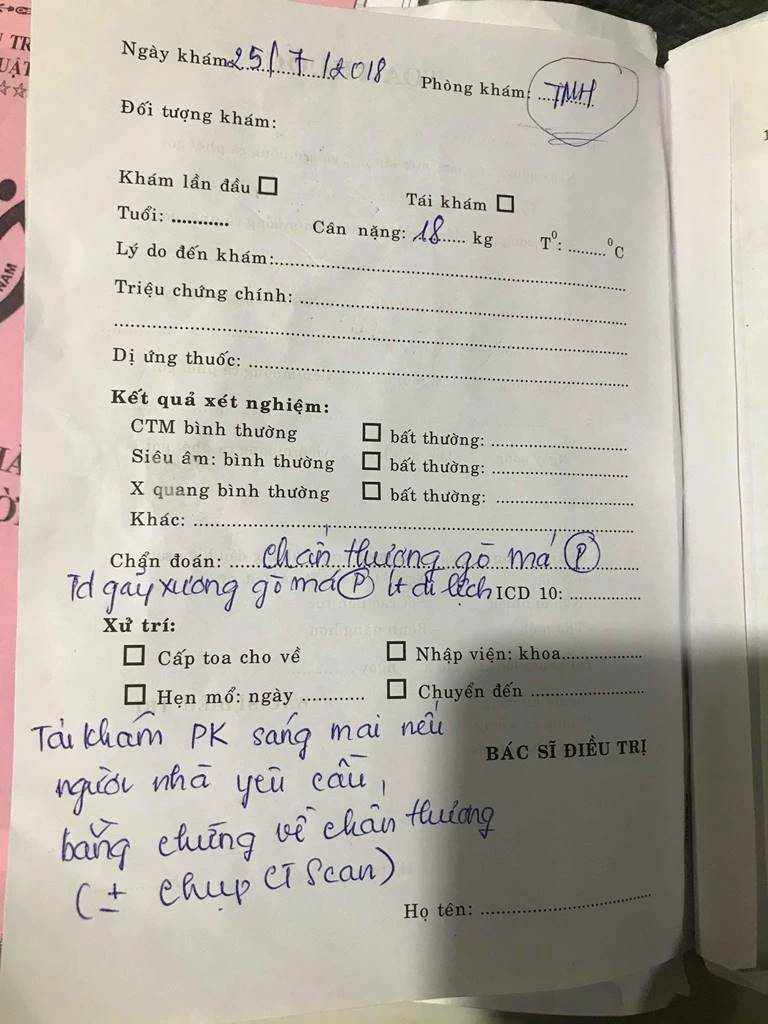 Ngày khám 25/7/2018 Phòng khám: TMH
Đối tượng khám:
Khám lần đầu □ Tái khám □
Tuổi: ........... Cân nặng: 18 ...... kg T⁰: ......... ⁰C
Lý do đến khám:
Triệu chứng chính:
Dị ứng thuốc:
Kết quả xét nghiệm:
CTM bình thường □ bất thường:
Siêu âm: bình thường □ bất thường:
X quang bình thường □ bất thường:
Khác:
Chẩn đoán: chấn thương gò má (P)
Td gãy xương gò má (P) ít di lệch ICD 10:
Xử trí:
□ Cấp toa cho về □ Nhập viện: khoa
□ Hẹn mổ: ngày ............ □ Chuyển đến
Tái khám PK sáng mai nếu
người nhà yêu cầu,
BÁC SĨ ĐIỀU TRỊ
bằng chứng về chấn thương
(± chụp CT Scan)
Họ tên:
NAM